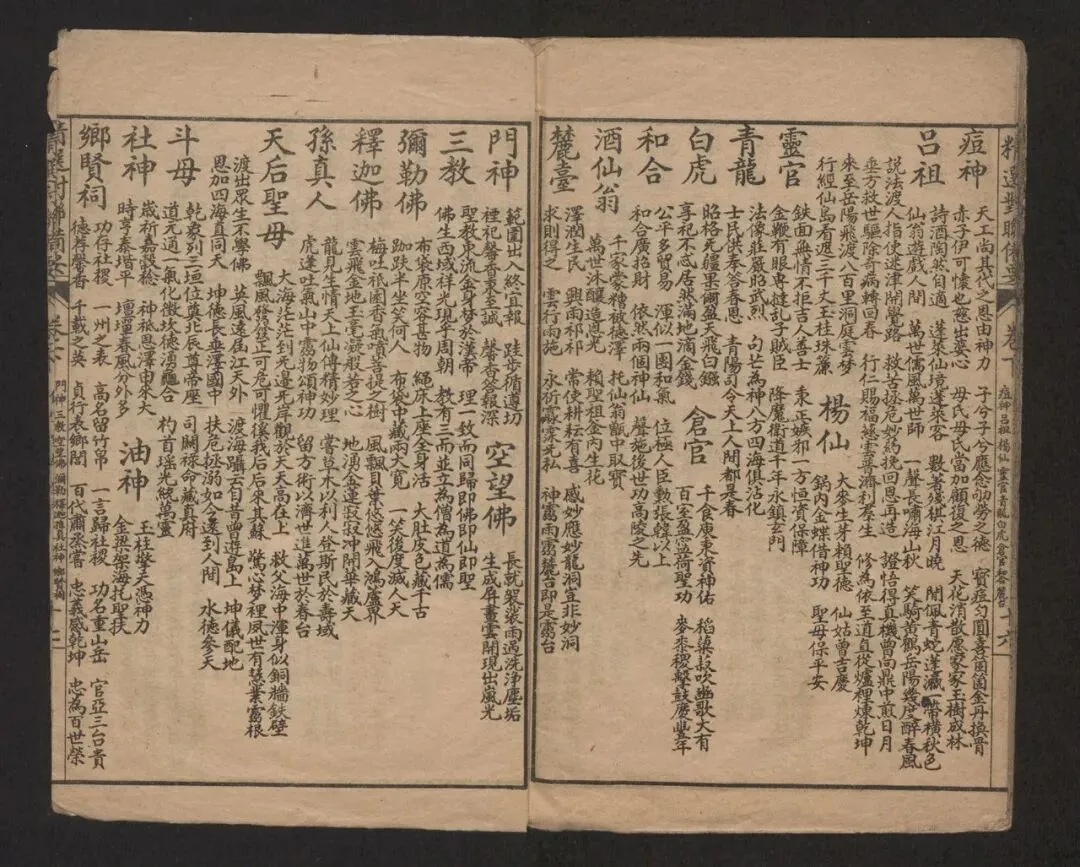 精選對聯備要
卷下
痘神
天工尚其代之恩由神力
子兮子兮應念劬勞之德
赤子伊可懷也慈出婆心
母氏母氏當加顧復之恩
天花消散愿家家玉樹成林
呂祖
詩酒陶然自適
蓬萊仙境蓬萊客
數著殘棋江月曉
閒佩青蛇蓬瀛一帶橫秋色
仙翁遊戲人間
萬世儒風萬世師
一聲長嘯海山秋
笑騎黃鶴岳陽幾度醉春風
說法渡人指使迷津開覺路
救苦拯危妙約挽回恩再造
證悟得真機曾向鼎中煎日月
垂方救世驅除奇病轉回春
修為依至道直從爐裡煉乾坤
來至岳陽飛渡八百里洞庭雲夢
行經仙島看遐三千丈玉柱珠簾
楊仙
大麥生芽賴聖德
仙姑曾吉慶
鍋內金蝶借神功
聖母保平安
靈官
鉄面無情不拒吉人善士
秉正嫉邪一方恒資保障
金鞭有眼專撻乱子賊臣
降魔衛道千年永鎮玄門
青龍
法像莊嚴昭武烈
句芒為神八方四海俱沾化
士民供奉答春恩
青陽司令天上人間都是春
白虎
昭格无疆果爾盈天飛白鏹
享祀不忒居然滿地滴金錢
倉官
千食庚東資神佑
百室盈盈荷聖功
和合
公平多貿易
渾似一團和氣
位極人臣勳張韓以上
和合廣招財
依然兩個神仙
聲施後世功高陵之先
酒仙翁
千家蒙糟被德澤
托仙翁甑中取寶
萬世沐釀造恩光
賴聖祖釜內生花
麓臺
澤潤生民
興雨祁祁
常使耕耘有喜
感妙應妙龍洞宜非妙洞
求則得之
雲行雨施
永祈霢霂无私
神靈雨靈麓台即是靈台
門神
範圍出入終宜報
跬步循道功
裡祀馨香東至誠
馨香答報深
空望佛
長就袈裟雨過洗淨塵垢
生成屏畫雲開現出嵐光
三教
聖教東流金身梦於漢帝
理一致而同歸即佛即仙即聖
佛生西域祥光現乎周朝
教有三而並立為僧為道為儒
彌勒佛
布袋原空容甚物
繩床上座全身活
大肚皮包藏千古
跏趺半坐笑何人
布袋中藏兩大寬
一笑後度滅人天
釋迦佛
梅吐祇園香氣噴菩提之樹
風飄貝葉悠悠飛入鴻蘆界
雲飛金地玉毫凝般若之心
地湧金蓮寂寂沖開華藏天
孫真人
龍見生情天上仙傳精妙理
嘗草木以利人登斯民於壽域
虎逢吐氣山中靈物頌神功
留方術以濟世進萬世於春台
天后聖母
大海茫茫到无邊无岸觀於天天高在上
救父海中渾身似銅牆鉄壁
飄風發發正可危可懼徯我后后來其蘇
驚心梦裡夙世有慧業靈根
渡出眾生不學佛
英風遠届江天外
渡海躡云自昔曾遊島上
坤儀配地
恩加四海直同天
坤德長垂澤國中
扶危拯溺如今遠到人間
水德參天
斗母
乾象列三垣位奠北辰專帝座
司關祿命藏真府
道元通一氣化徵坎德湧龜合
杓首瑶光統萬靈
社神
崴祈嘉穀稔
神祗恩澤由來大
時亨泰堦平
壇壝春風分外多
油神
玉柱擎天憑神力
金梁架海托聖扶
鄉賢祠
功存社稷
一州之表
高名留竹帛
一言歸社稷
功名重山岳
官亞三台貴
德荐馨香
千載之英
貞行表鄉閭
百代肅烝嘗
忠義感乾坤
忠為百世榮
卷下